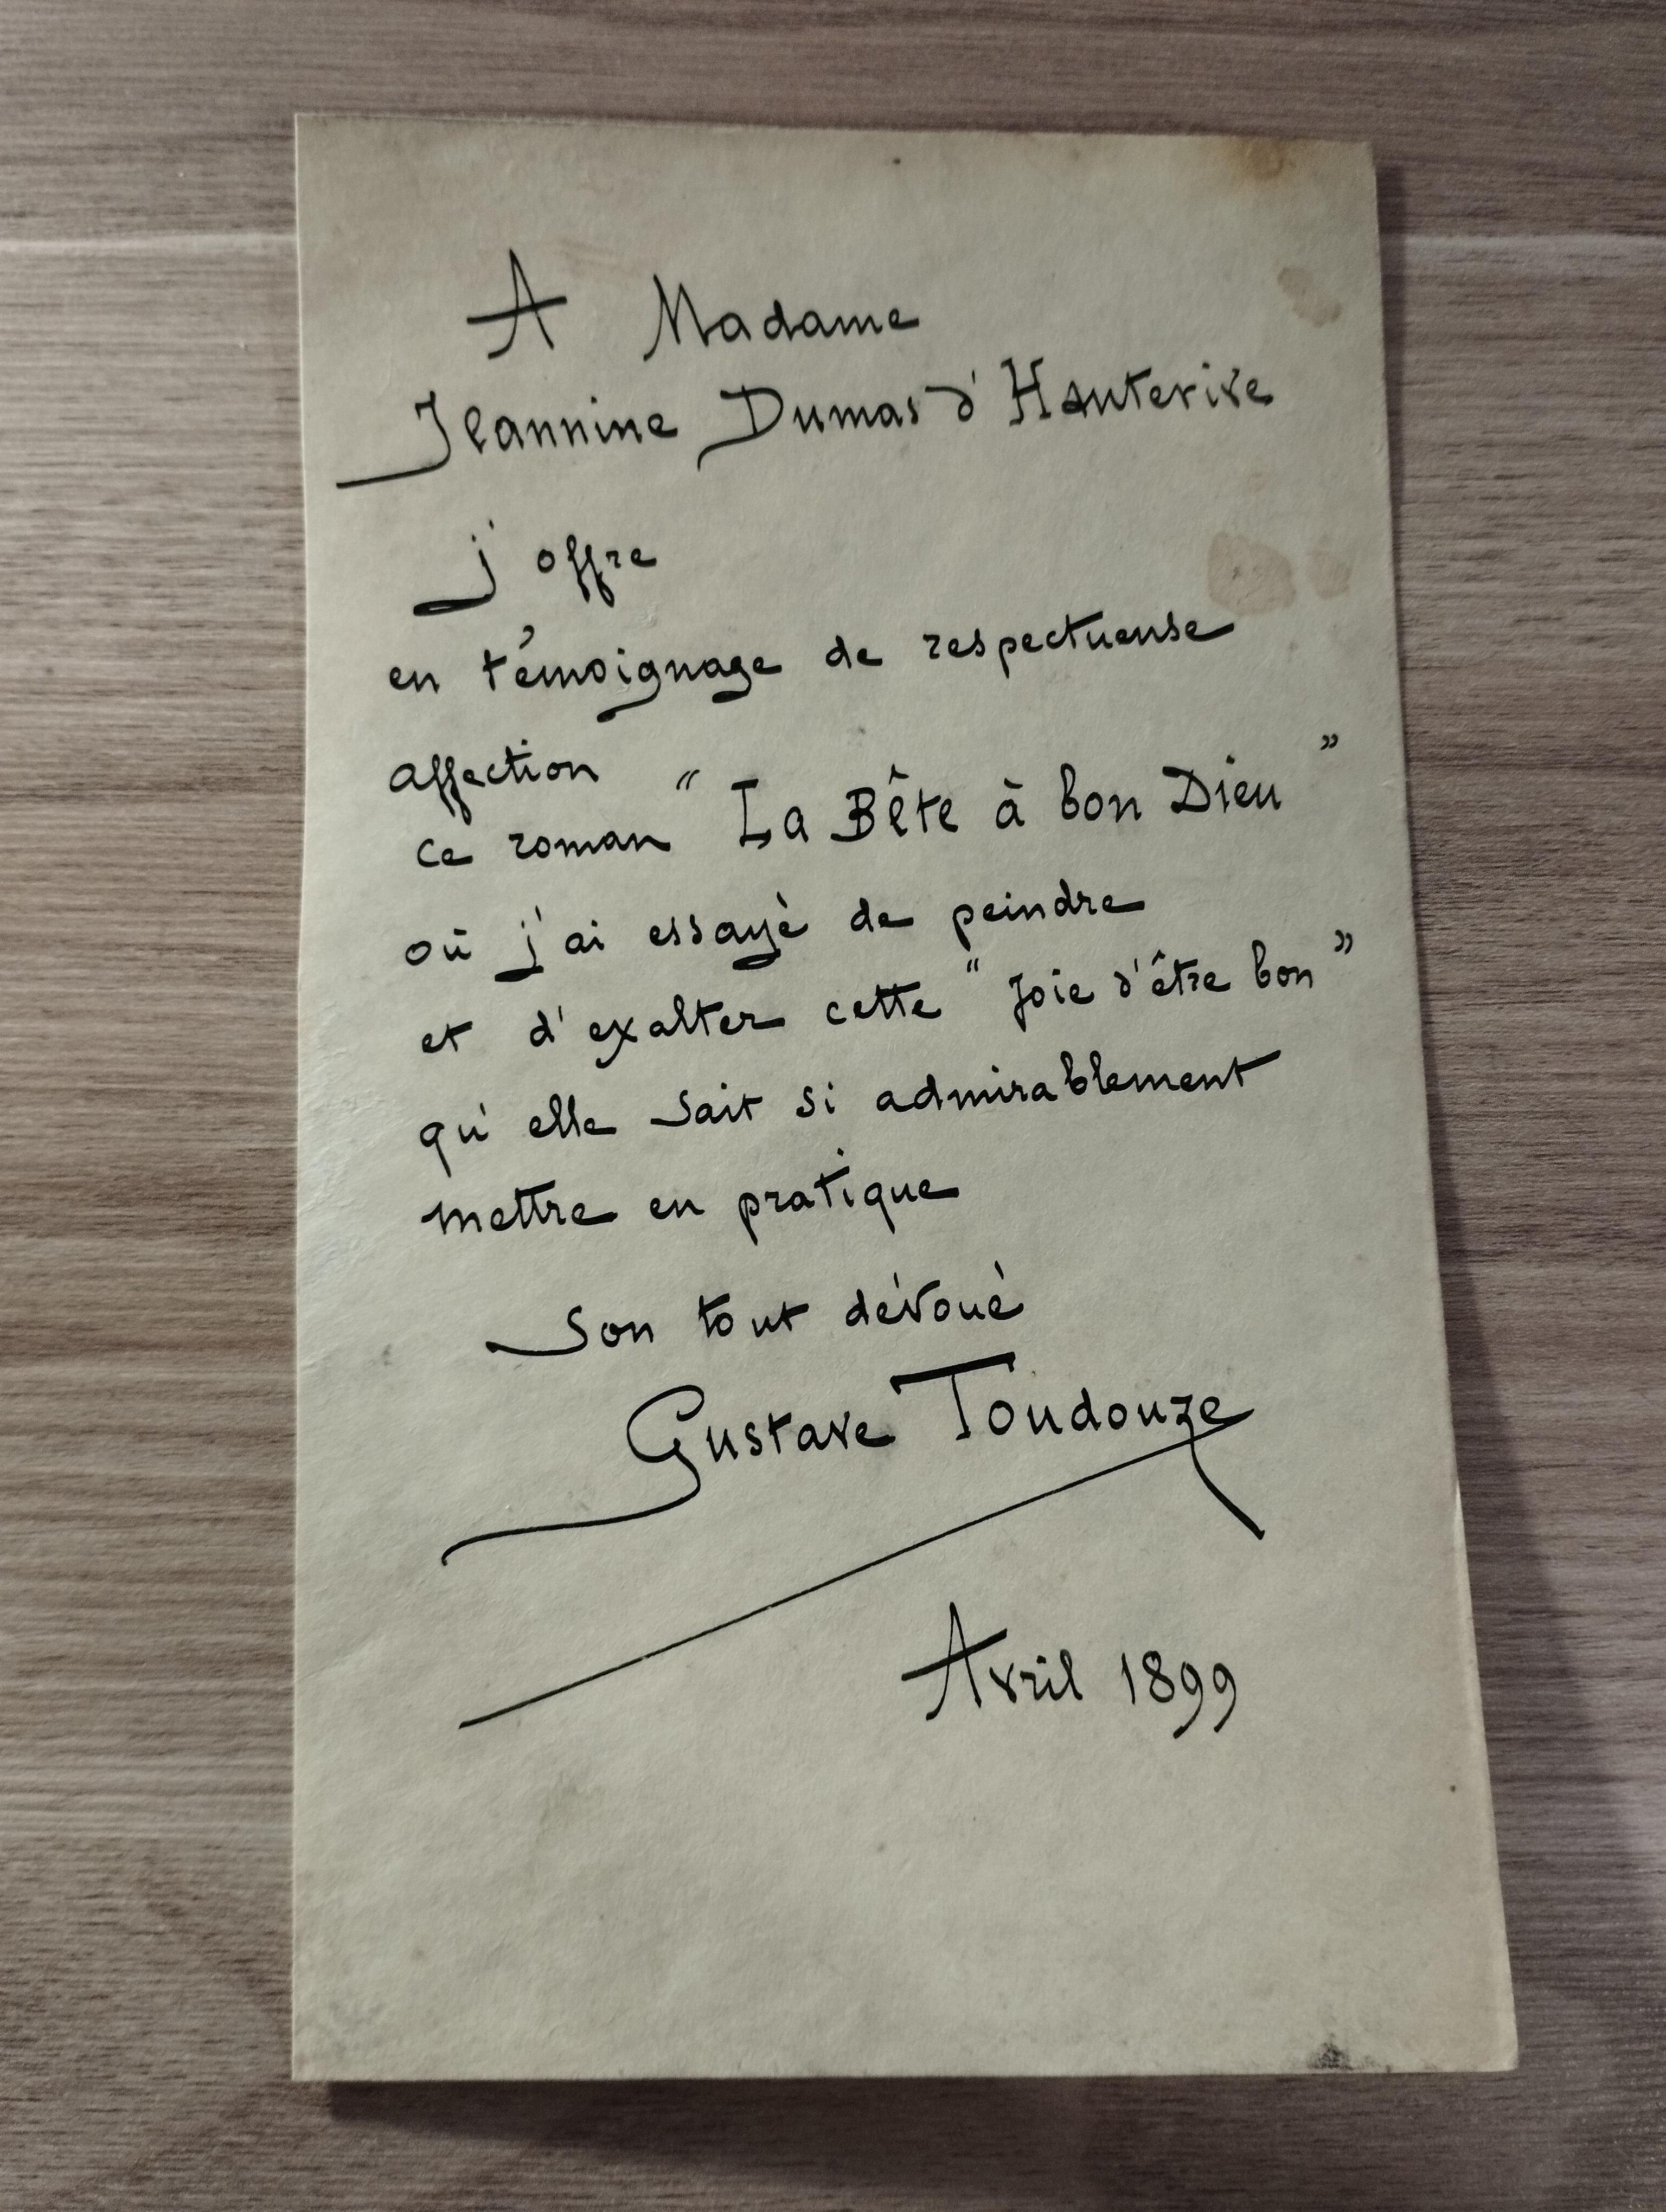 A Madame
Jeannine Dumas d'Hauterive
j'offre
en témoignage de respectueuse
affection
ce roman "La Bête à bon Dieu"
où j'ai essayé de peindre
et d'exalter cette "joie d'être bon"
qu'elle sait si admirablement
mettre en pratique
Son tout dévoué
Gustave Toudouze
Avril 1899